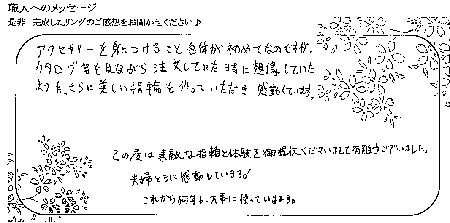 職人へのメッセージ
是非 完成したリングのご感想をお聞かせください♪
アクセサリーを身につけること自体が初めてなのですが、
カタログ等を見ながら注文していた時に想像していた
よりもさらに美しい指輪を作っていただき 感動しています。
この度は素敵な指輪と体験を御提供くださいまして有難うございました。
夫婦ともに感動しています。
これから何年も、大事に使っていきます。